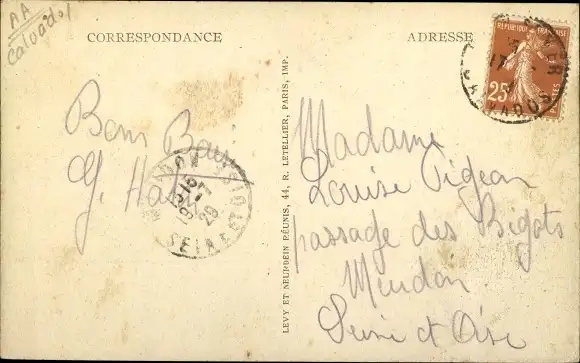 AA
Calvados
CORRESPONDANCE
ADRESSE
REPUBLIQUE FRANÇAISE
25
CALVADOS
Bons Baisers
LEVY ET NEURDEIN RÉUNIS, 44, R. LETELLIER, PARIS, IMP.
SEINE
Madame
Louise Pigean
passage des Bigots
Meudon
Seine et Oise